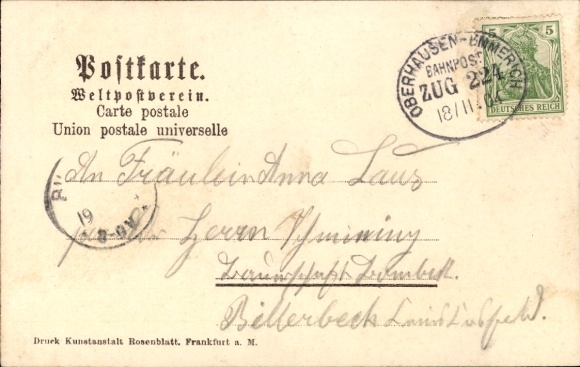 Postkarte.
Weltpostverein.
Carte postale
Union postale universelle
5 5
DEUTSCHES REICH
OBERHAUSEN-EMMERICH
BAHNPOST
ZUG 224
18/11
An Fräulein Anna Laus
Herrn
Bauerschaft Bombeck.
Billerbeck
19
8-9V
Druck Kunstanstalt Rosenblatt. Frankfurt a. M.